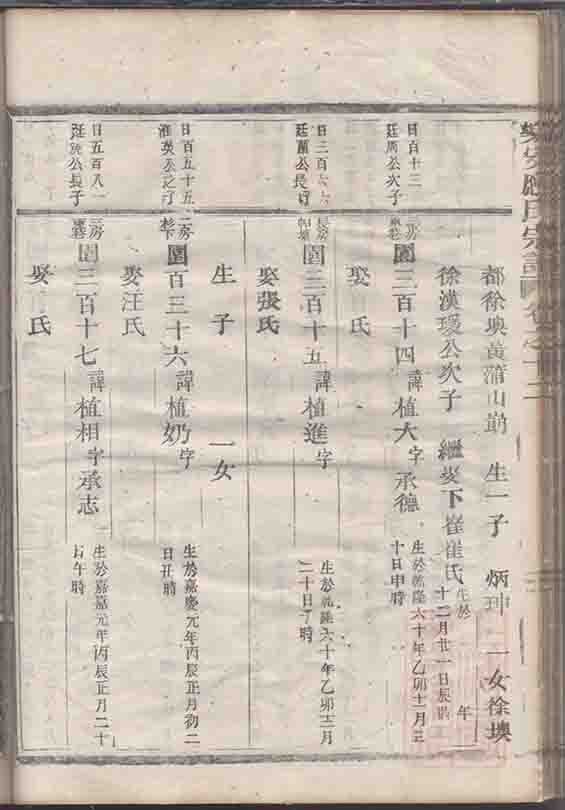 應氏宗譜
都徐墺黃蒲山崩 生一子 炳珅 一女徐墺
徐漢璦公次子 繼娶下崔崔氏 生於 年
十二月廿一日辰時
日百十三
廷周公次子
三百十四 諱植大 字承德 生於乾隆六十年乙卯十二月三
十日申時
娶 氏
日三百六六
廷蘭公長子
長房
三百十五 諱植進 字 生於乾隆六十年乙卯十二月
二十日子時
娶張氏
生子 一女
日百五十五
二房
百三十六 諱植奶 字 生於嘉慶元年丙辰正月初二
日丑時
娶汪氏
日五百八一
公長子
三房
三百十七 諱植相 字承志 生於嘉慶元年丙辰正月二十
午時
娶 氏